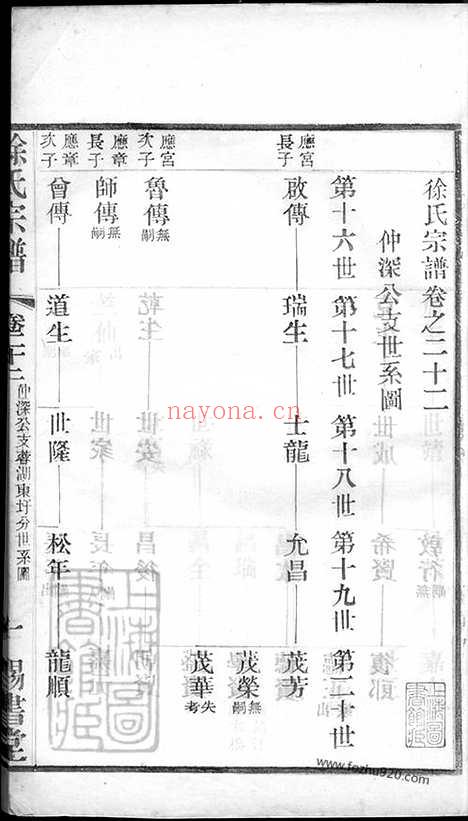 徐氏宗譜卷之二十二
仲深公支世系圖
第十六世 第十七世 第十八世 第十九世 第二十世
應宮長子 啟傳 瑞生 士龍 允昌 茂芳
茂榮 無嗣
茂華 失考
應宮次子 魯傳 無嗣
應章長子 師傳 無嗣
應章次子 曾傳 道生 世隆 松年 龍順
徐氏宗譜 卷二十二 仲深公支 湖東圩分世系圖 一 賜書堂
上海圖書館藏
上海圖書館藏
nayona.cn
www.fozhu920.com